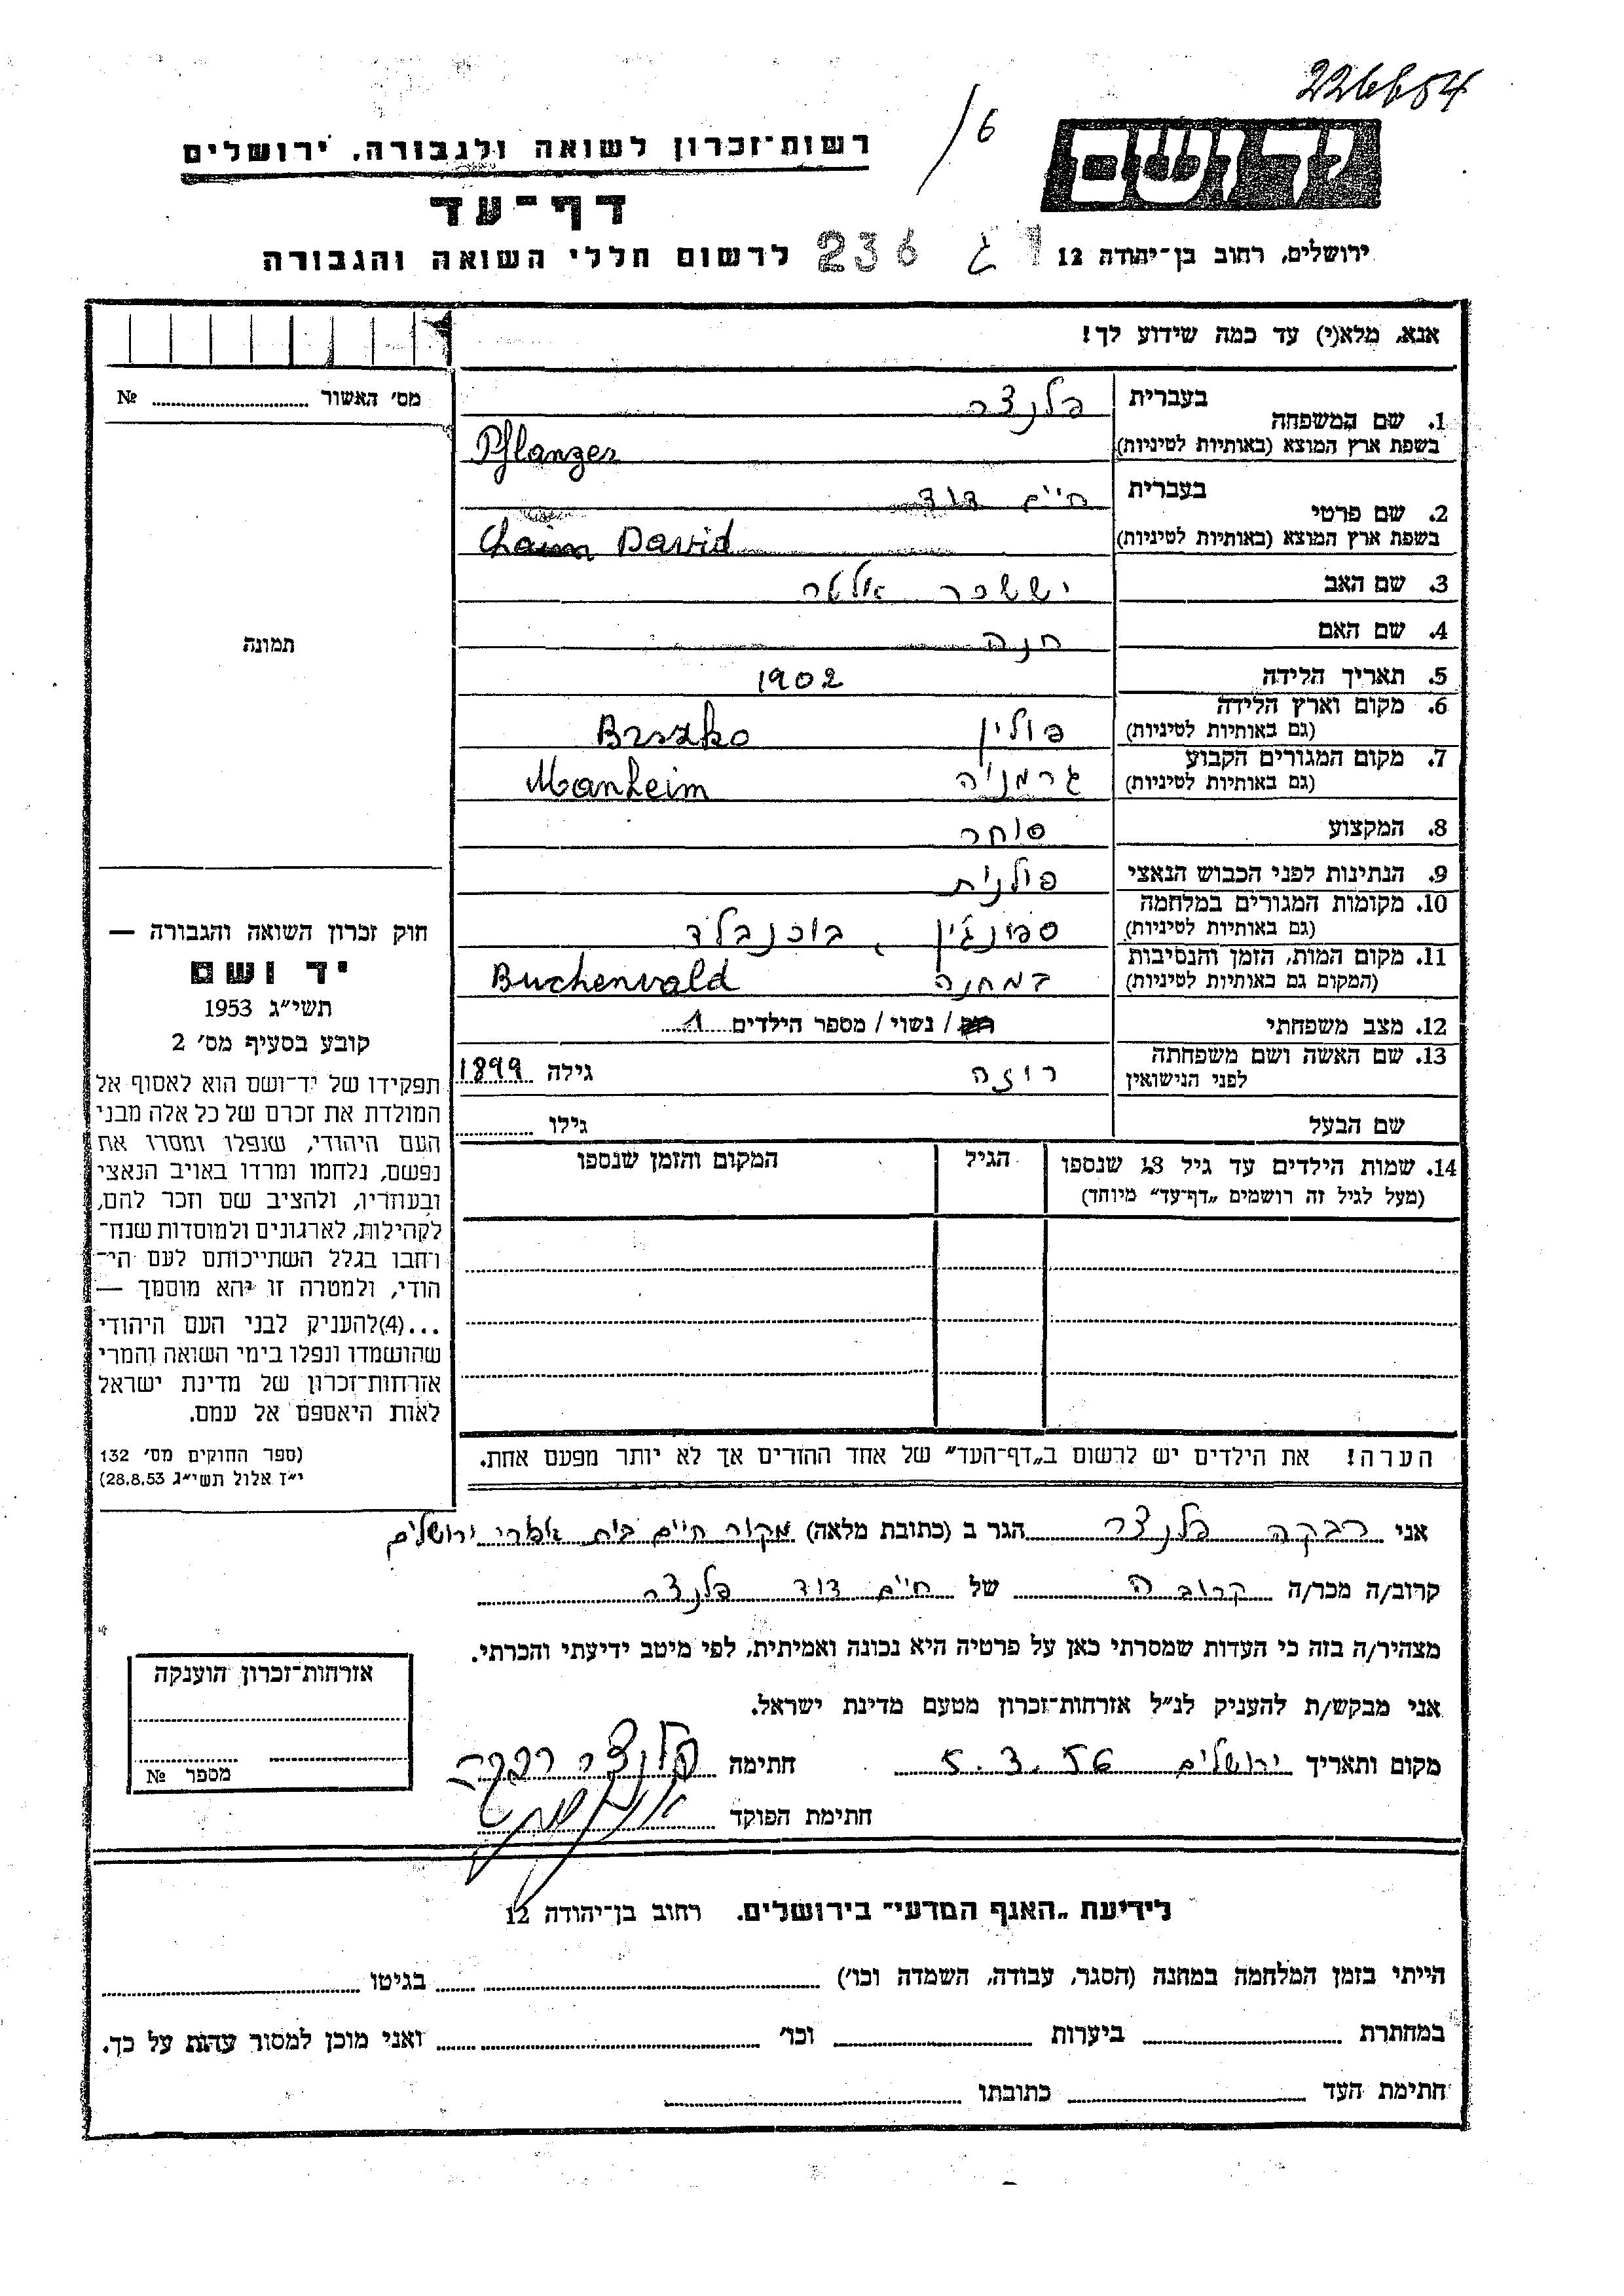 226654
רשות־זכרון לשואה ולגבורה, ירושלים
/6
יד ושם
דף־עד
לרשום חללי השואה והגבורה
236 ג 1
ירושלים, רחוב בן־יהודה 12
אנא, מלא(י) עד כמה שידוע לך!
מס׳ האשור № 
1. שם המשפחה בעברית פלנצר
בשפת ארץ המוצא (באותיות לטיניות) Pflanzer
2. שם פרטי בעברית חיים דוד
בשפת ארץ המוצא (באותיות לטיניות) Chaim David
3. שם האב יששכר אלטר
4. שם האם חנה
5. תאריך הלידה 1902
6. מקום וארץ הלידה (גם באותיות לטיניות) פולין Brzko
7. מקום המגורים הקבוע (גם באותיות לטיניות) גרמניה Manheim
8. המקצוע סוחר
9. הנתינות לפני הכבוש הנאצי פולנית
10. מקומות המגורים במלחמה (גם באותיות לטיניות) בוכנבלד
11. מקום המות, הזמן והנסיבות (המקום גם באותיות לטיניות) במחנה Buchenwald
12. מצב משפחתי רוק / נשוי / מספר הילדים 1
13. שם האשה ושם משפחתה לפני הנישואין רוזה גילה 1899
שם הבעל גילו
14. שמות הילדים עד גיל 18 שנספו (מעל לגיל זה רושמים „דף־עד״ מיוחד) הגיל המקום והזמן שנספו
הערה! את הילדים יש לרשום ב„דף־העד״ של אחד ההורים אך לא יותר מפעם אחת.
תמונה
חוק זכרון השואה והגבורה —
יד ושם
תשי״ג 1953
קובע בסעיף מס׳ 2
תפקידו של יד־ושם הוא לאסוף אל
המולדת את זכרם של כל אלה מבני
העם היהודי, שנפלו ומסרו את
נפשם, נלחמו ומרדו באויב הנאצי
ובעוזריו, ולהציב שם וזכר להם,
לקהילות, לארגונים ולמוסדות שנח־
רחבו בגלל השתייכותם לעם הי־
הודי, ולמטרה זו יהא מוסמך —
...(4)להעניק לבני העם היהודי
שהושמדו ונפלו בימי השואה והמרי
אזרחות־זכרון של מדינת ישראל
לאות היאספם אל עמם.
(ספר החוקים מס׳ 132
י״ז אלול תשי״ג 28.8.53)
אני רבקה פלנצר הגר ב (כתובת מלאה) מקור חיים בית ירושלים
קרוב/ה מכר/ה קרובה של חיים דוד פלנצר
מצהיר/ה בזה כי העדות שמסרתי כאן על פרטיה היא נכונה ואמיתית, לפי מיטב ידיעתי והכרתי.
אני מבקש/ת להעניק לנ״ל אזרחות־זכרון מטעם מדינת ישראל.
מקום ותאריך ירושלים 5.3.56 חתימה פלנצר רבקה
חתימת הפוקד
אזרחות־זכרון הוענקה
מספר №
לידיעת „האגף המדעי״ בירושלים. רחוב בן־יהודה 12
הייתי בזמן המלחמה במחנה (הסגר, עבודה, השמדה וכו׳) בגיטו
במחתרת ביערות וכו׳ ואני מוכן למסור עדות על כך.
חתימת העד כתובתו